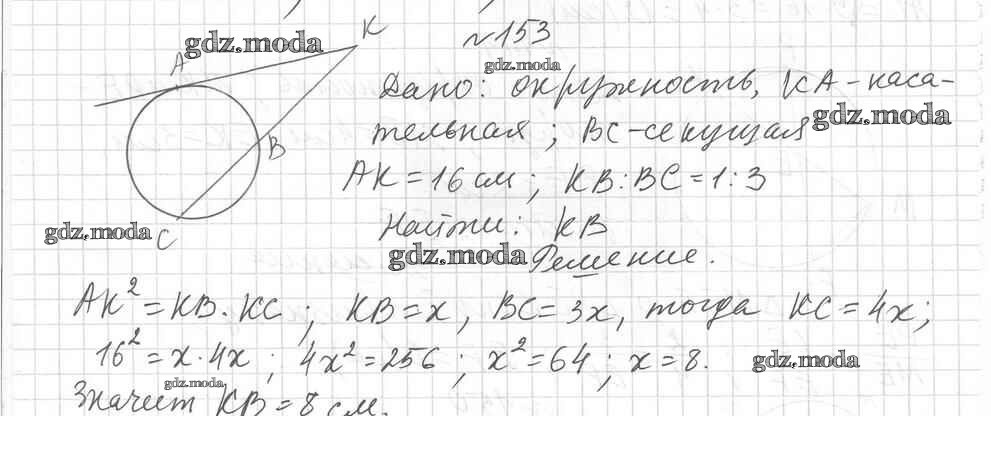 gdz.moda
K
A
B
C
gdz.moda
№153
gdz.moda
Дано: окружность, КА-каса-
тельная; ВС-секущая
gdz.moda
АК=16см; КВ:ВС=1:3
Найти: КВ
gdz.moda
Решение.
АК²=КВ·КС; КВ=х, ВС=3х, тогда КС=4х;
16²=х·4х; 4х²=256; х²=64; х=8.
gdz.moda
gdz.moda
Значит КВ=8 см.